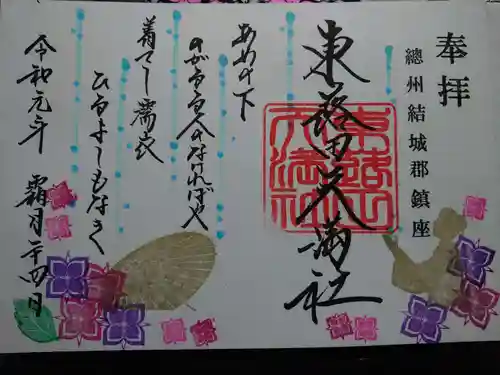 奉拝
總州結城郡鎮座
東蕗田天満社
あめの下
のがるる人のなければや
着てし濡衣
ひるよしもなき
令和元年 霜月二十四日